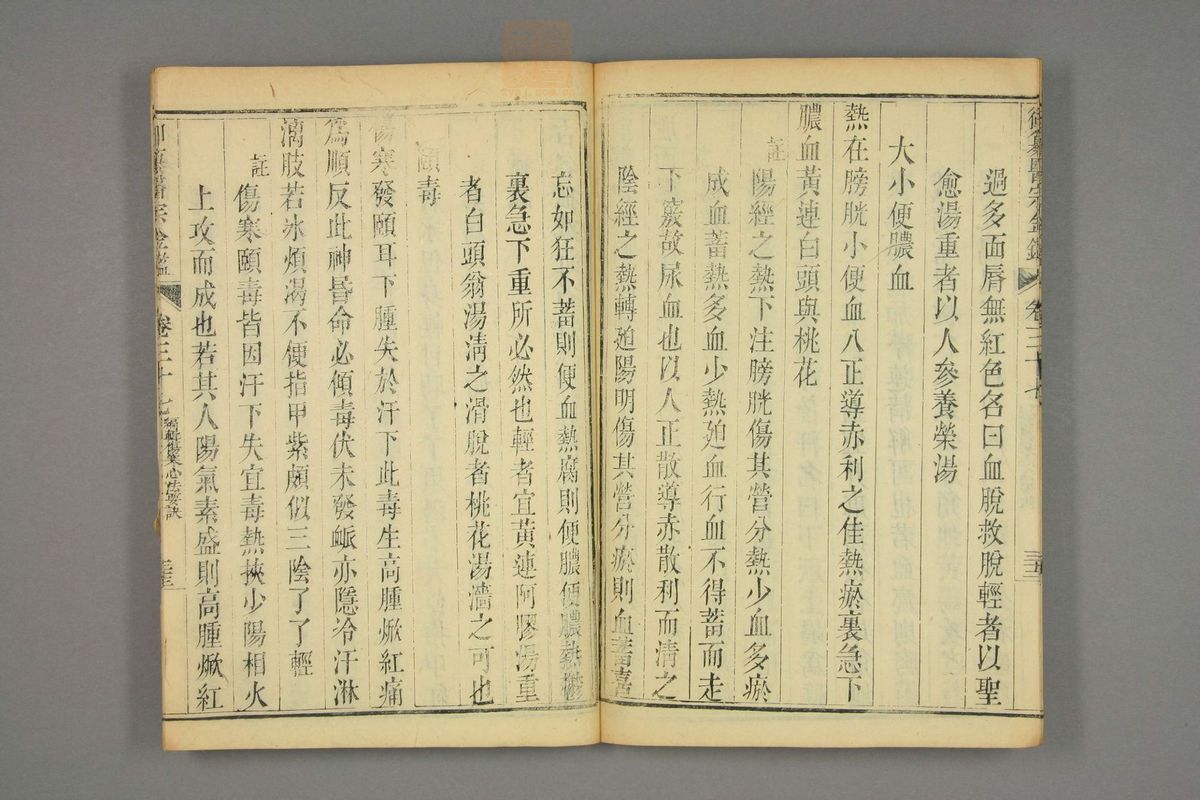 御纂醫宗金鑑 卷三十七
過多面唇無紅色名曰血脫救脫輕者以聖
愈湯重者以人參養榮湯
大小便膿血
熱在膀胱小便血八正導赤利之佳熱瘀裏急下
膿血黃連白頭與桃花
註
陽經之熱下注膀胱傷其營分熱少血多瘀
成血蓄熱多血少熱廹血行血不得蓄而走
下竅故尿血也以八正散導赤散利而清之
陰經之熱轉廹陽明傷其營分瘀則血蓄喜
忘如狂不蓄則便血熱腐則便膿便膿熱鬱
裏急下重所必然也輕者宜黃連阿膠湯重
者白頭翁湯清之滑脫者桃花湯濇之可也
頤毒
傷寒發頤耳下腫失於汗下此毒生高腫焮紅痛
爲順反此神昏命必傾毒伏未發衇亦隱冷汗淋
漓肢若冰煩渴不便指甲紫頗似三陰了了輕
註
傷寒頤毒皆因汗下失宜毒熱挾少陽相火
上攻而成也若其人陽氣素盛則高腫焮紅
御纂醫宗金鑑 卷三十七 編輯傷寒心法要訣